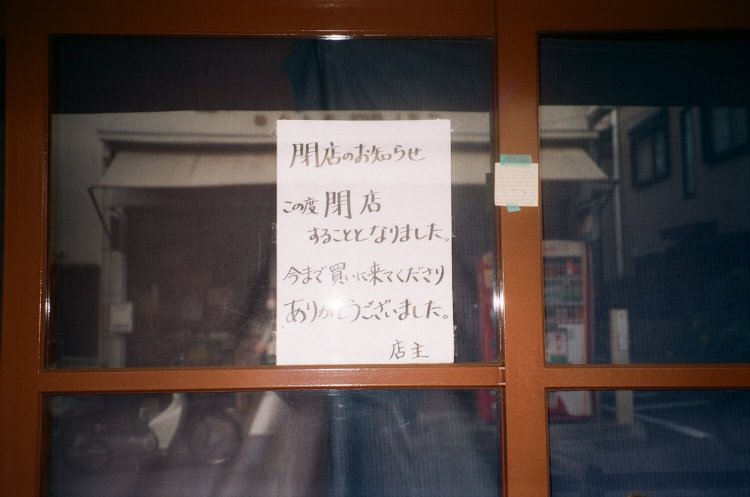 閉店のお知らせ
この度 閉店
することとなりました。
今まで買いに来てくださり
ありがとうございました。
店主